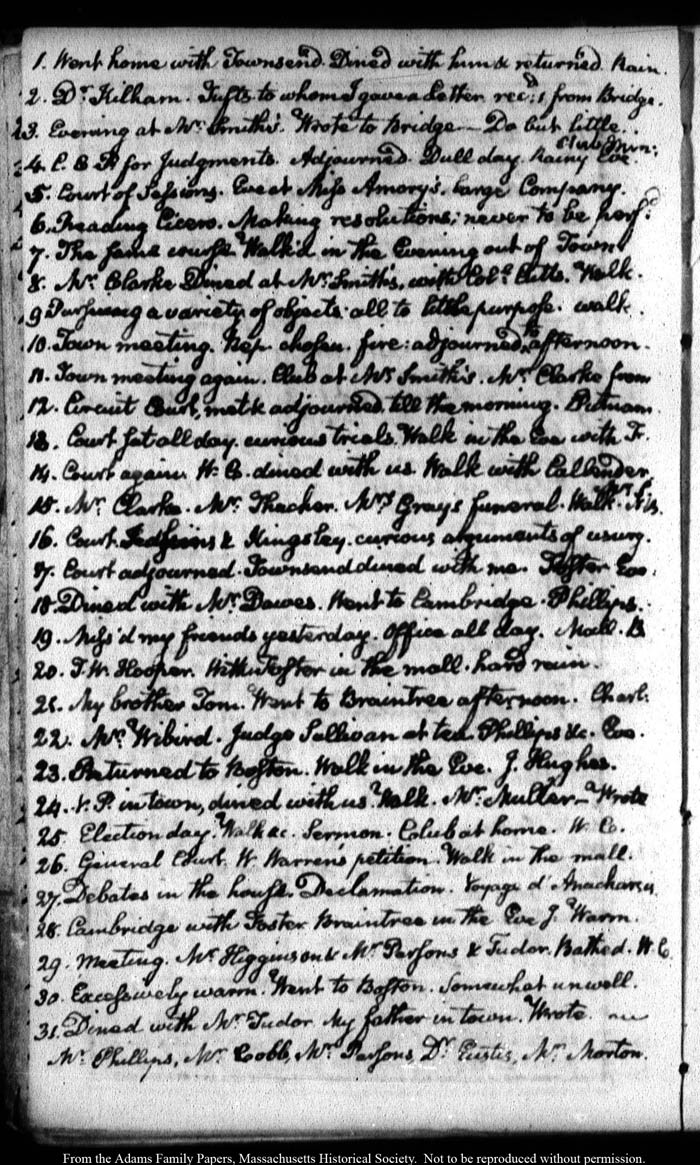 1. Went home with Townsend. Dined with him & returned. Rain.
2. Dr. Kilham. Tufts to whom I gave a Letter. rec'd 1 from Bridge.
3. Evening at Mr. Smith's. Wrote to Bridge — Do but little.
4. C. C. P. for Judgments. Adjourned. Dull day. Rainy Eve. Club
5. Court of Sessions. Eve at Miss Amory's. large Company.
6. Reading Cicero. Making resolutions; never to be perf:d
7. The same course. Walk'd in the Evening out of Town
8. Mr. Clarke Dined at Mr. Smith's, with Col.o Cutts. Walk.
9. Pursuing a variety of objects: all to little purpose. walk.
10. Town meeting. Rep. chosen. fire: adjourned to afternoon.
11. Town meeting again. Club at Mr. Smith's. Mr. Clarke from
12. Circuit Court, met & adjourned till the morning. Putnam.
13. Court sat all day. curious trials. Walk in the Eve with Fr.
14. Court again. W. C. dined with us. Walk with Callender.
15. Mr. Clarke. Mr. Thacher. Mrs. Gray's funeral. Walk.
16. Court. & Kingsley. curious arguments of usury.
17. Court adjourned. Townsend dined with me. Foster Eve.
18. Dined with Mr. Dawes. Went to Cambridge. Phillips.
19. Miss'd my friends yesterday. Office all day. Mall.
20. T. W. Hooper. With Foster in the mall. hard rain.
21. My brother Tom. Went to Braintree afternoon. Charl:
22. Mr. Wibird. Judge Sullivan at tea. Phillips &c. Eve.
23. Returned to Boston. Walk in the Eve. J. Hughes.
24. V. P. in town, dined with us. Walk. Mr. Muller — Wrote
25. Election day. Walk &c. Sermon. Club at home. W. C.
26. General Court. W. Warren's petition. Walk in the mall.
27. Debates in the house. Declamation. Voyage d'Anacharsis
28. Cambridge with Foster. Braintree in the Eve J. Warm.
29. Meeting. Mr. Higginson & Mr. Parsons & Tudor. Bathed. W. C.
30. Excessively warm. Went to Boston. Somewhat unwell.
31. Dined with Mr. Tudor. My father in town. Wrote.
Mr. Phillips, Mr. Cobb, Mr. Parsons, Dr. Eustis, Mr. Morton.
From the Adams Family Papers, Massachusetts Historical Society. Not to be reproduced without permission.